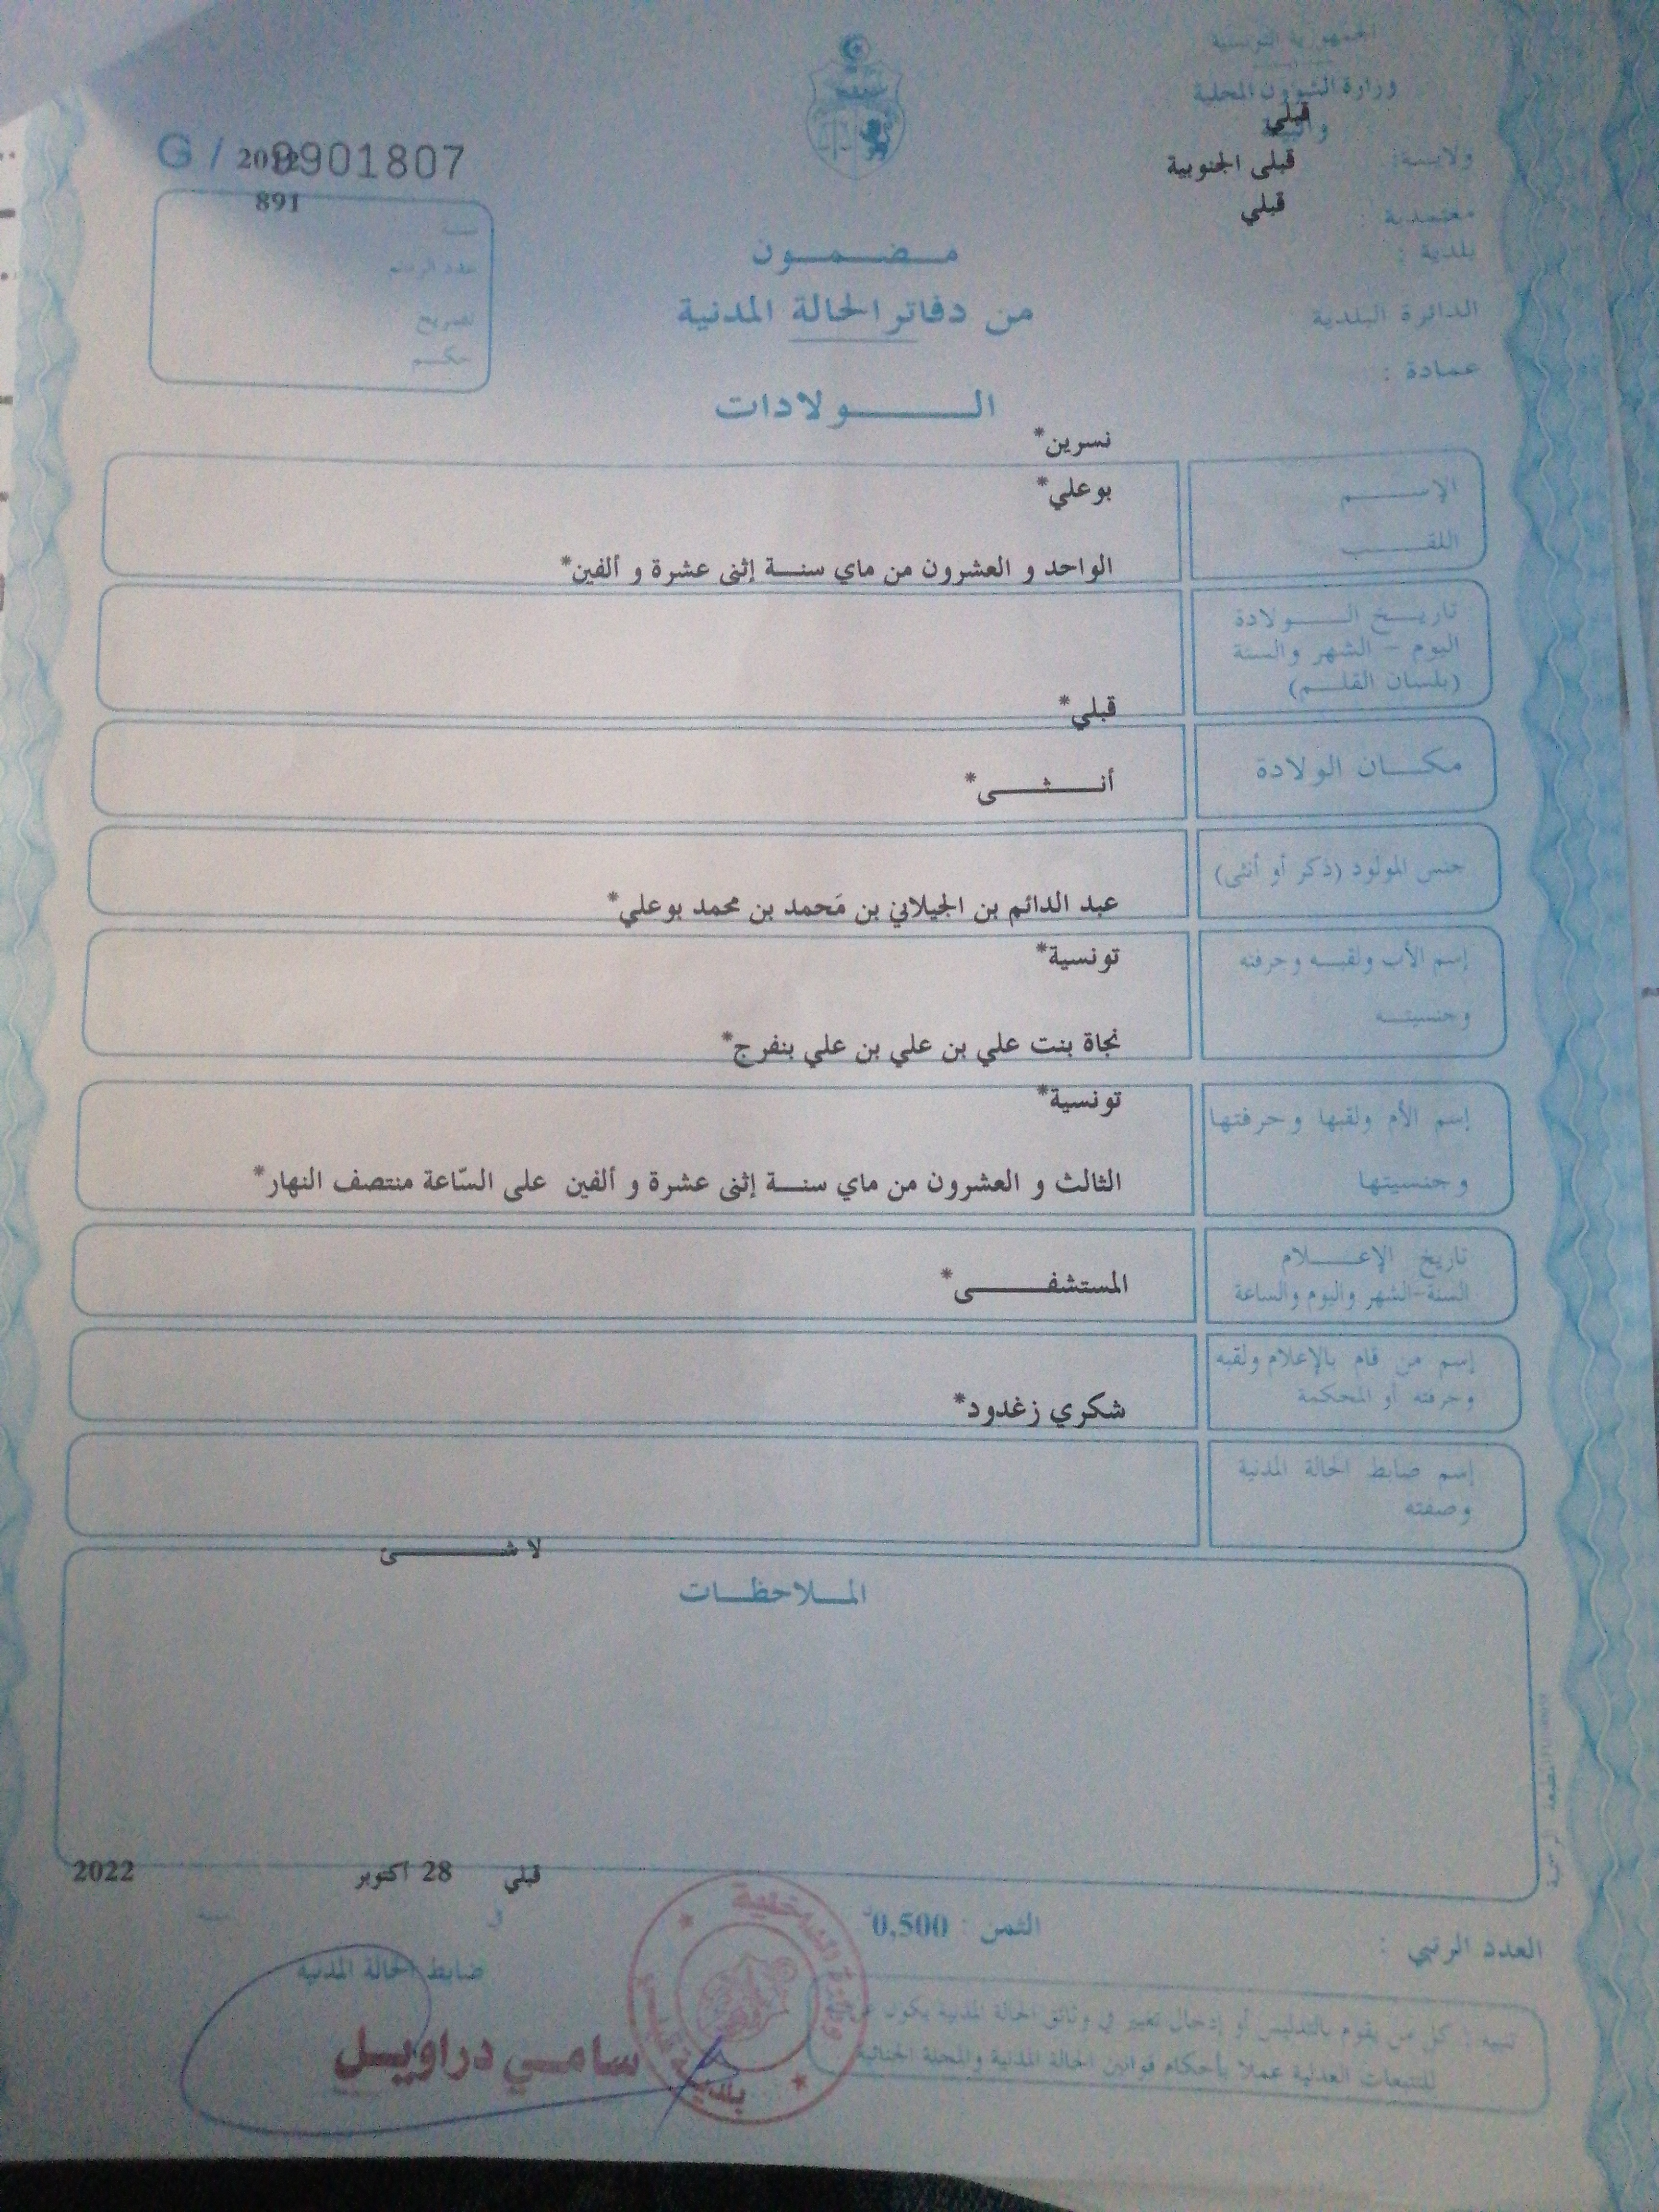 الجمهورية التونسية
وزارة الشؤون المحلية
والبيئة
قبلي
ولايـــة:
قبلى الجنوبية
معتمدية :
قبلي
بلدية :
الدائرة البلدية
عمادة :
G / 8901807
2012
891
سنة
عدد الرسم
تصريح
حكم
مـضـمـون
من دفاتر الحالة المدنية
الـــولادات
نسرين*
الإســـم
بوعلي*
اللقـــب
الواحد و العشرون من ماي سنـة إثنى عشرة و ألفين*
تاريـخ الـــولادة
اليوم – الشهر والسنة
(بلسان القلـم)
قبلي*
مكـان الولادة
أنـــثـــى*
جنس المولود (ذكر أو أنثى)
عبد الدائم بن الجيلاني بن مَحمد بن محمد بوعلي*
إسم الأب ولقبـه وحرفته
تونسية*
وجنسيتـه
نجاة بنت علي بن علي بن علي بنفرج*
إسم الأم ولقبها وحرفتها
تونسية*
وجنسيتها
الثالث و العشرون من ماي سنـة إثنى عشرة و ألفين على السّاعة منتصف النهار*
تاريخ الإعـــلام
السنة-الشهر واليوم والساعة
المستشفـــى*
إسم من قام بالإعلام ولقبه
وحرفته أو المحكمة
شكري زغدود*
إسم ضابط الحالة المدنية
وصفته
لاشـــئ
المـلاحظـات
قبلي 28 اكتوبر 2022
في سنة
العدد الرتبي :
الثمن : 0,500
ضابط الحالة المدنية
سامـي دراويـل
تنبيه : كل من يقوم بالتدليس أو إدخال تغيير في وثائق الحالة المدنية يكون عرضة
للتتبعات العدلية عملا بأحكام قوانين الحالة المدنية والمجلة الجنائية